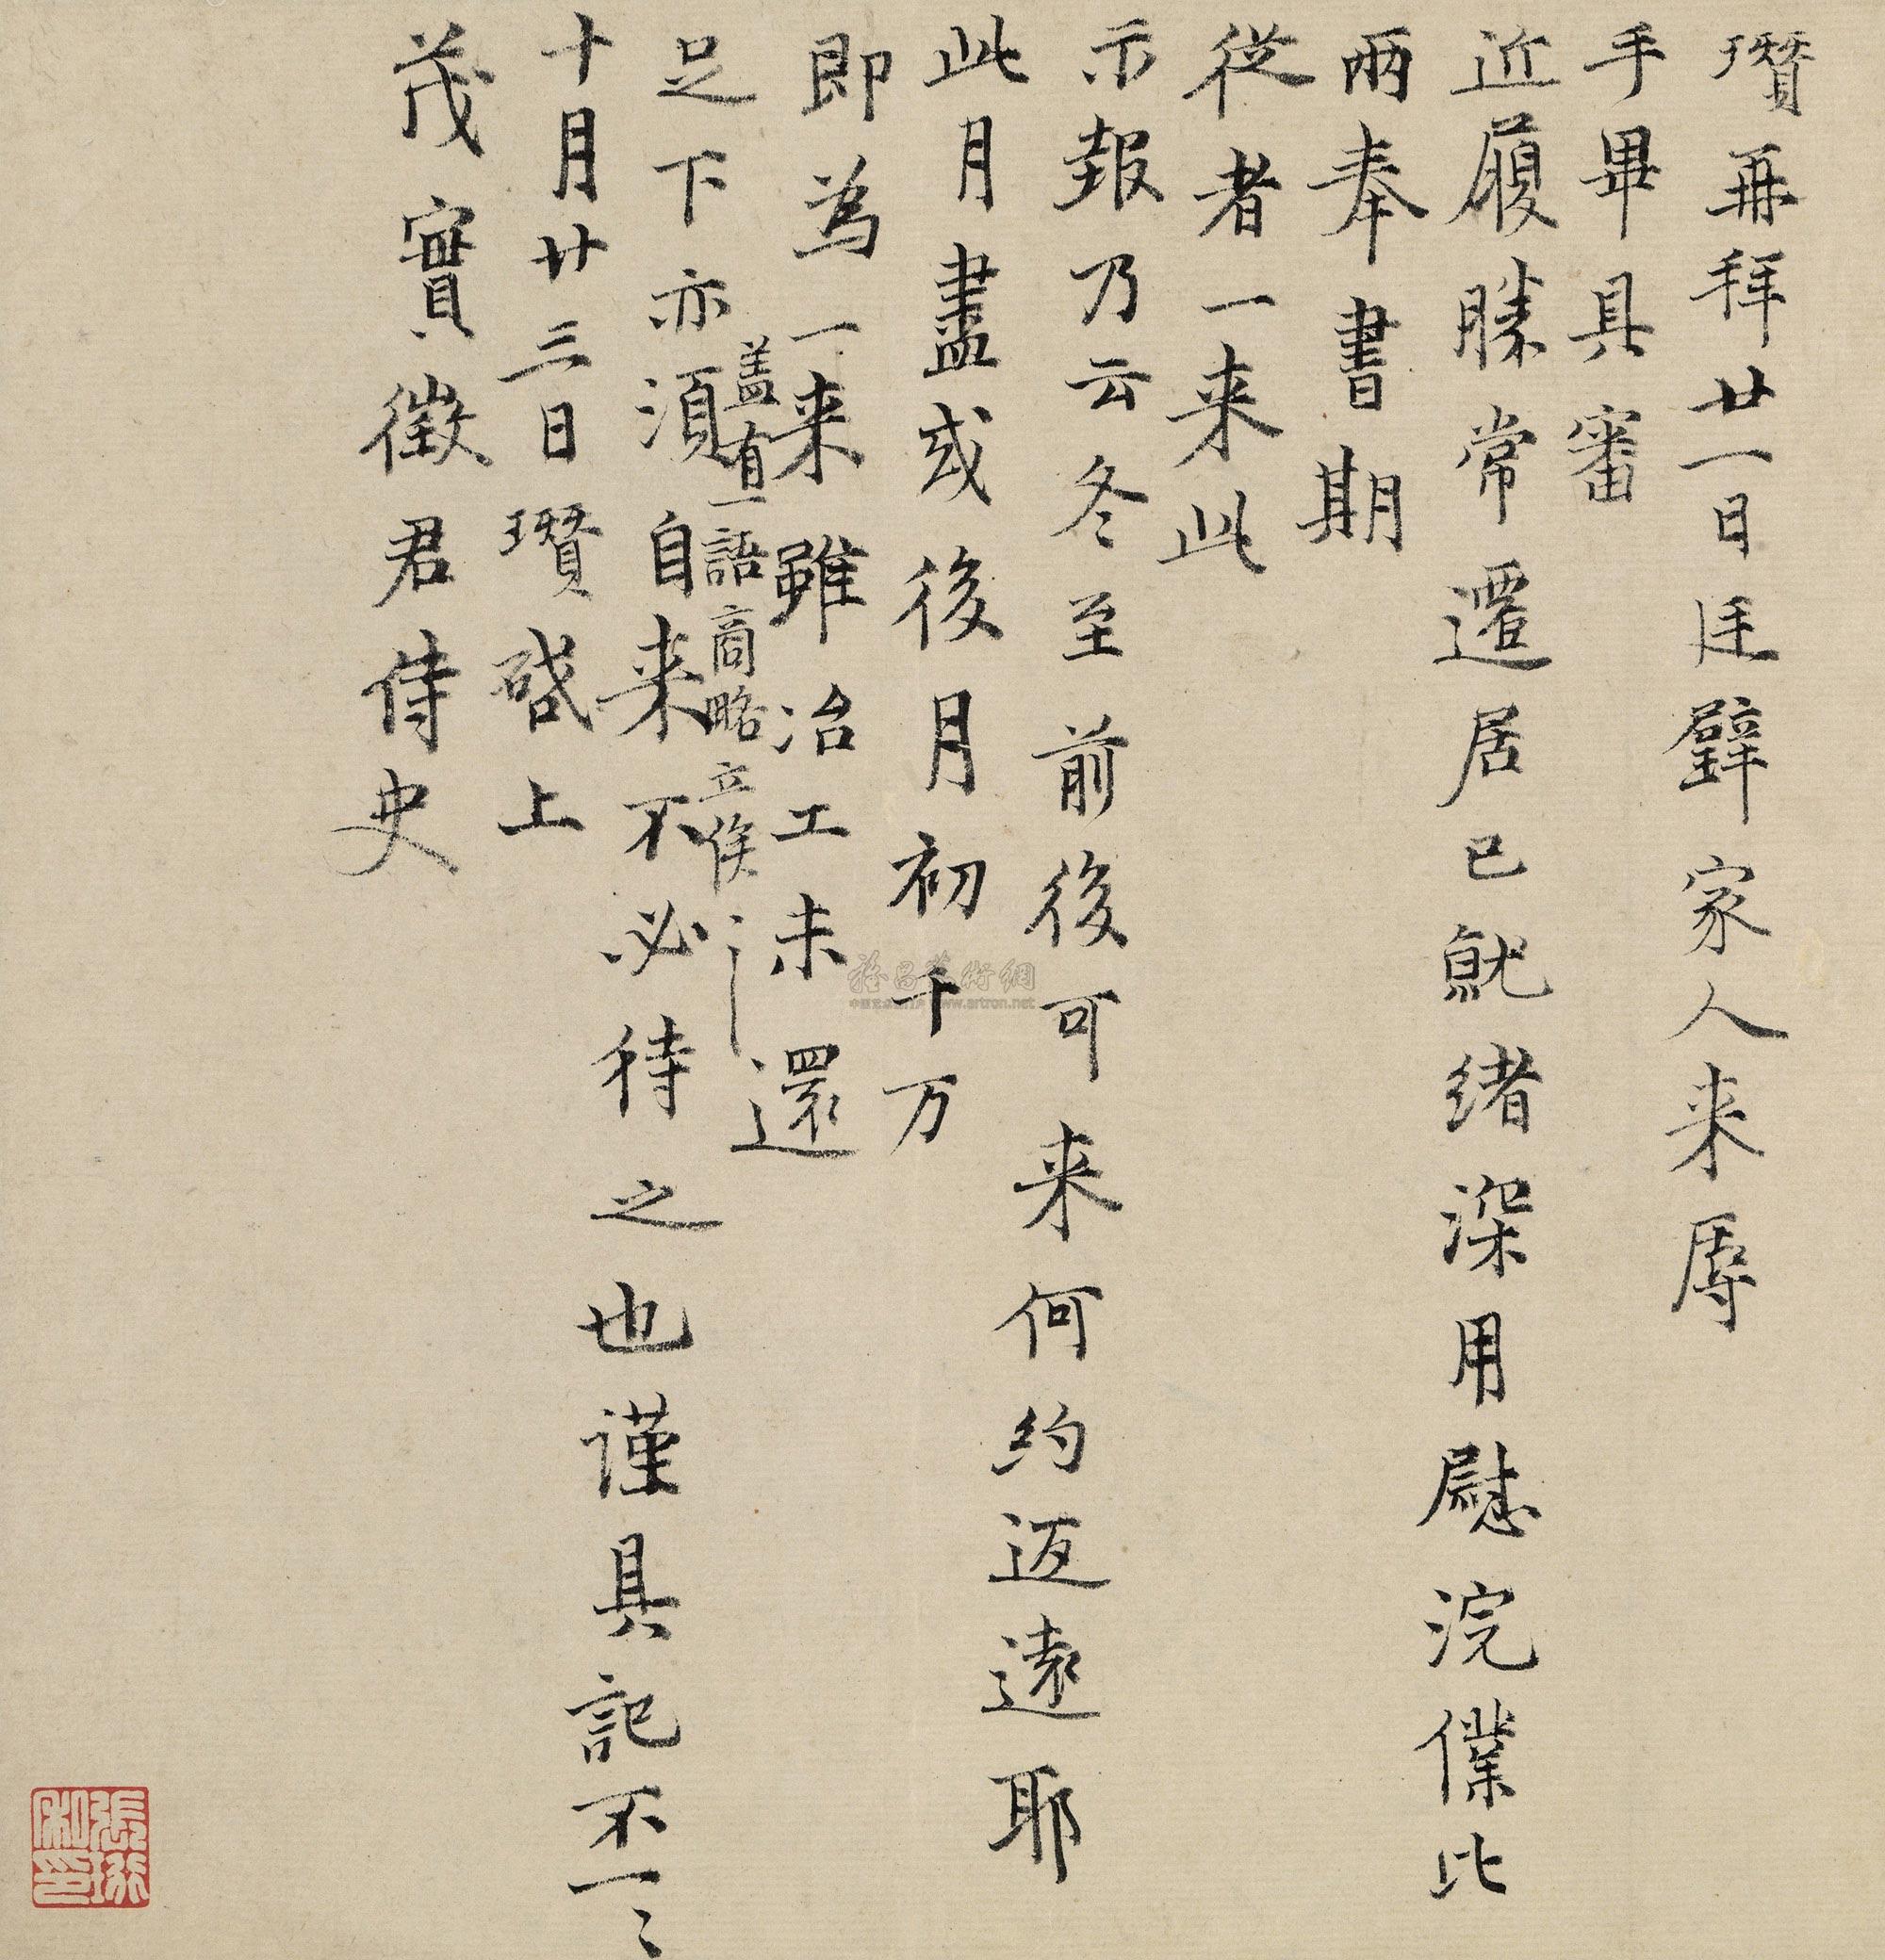 瓚再拜廿一日廷璧家人来辱
手畢具審
近履勝常遷居已就绪深用慰浣僕比
兩奉書期
從者一来此
示報乃云冬至前後可来何约返遠耶
此月盡或後月初千万
即為一来雖冶工未還
盖有一語商略立俟〻
足下亦須自来不必待之也谨具記不一〻
十月廿三日瓚啓上
茂實徵君侍史
www.artron.net